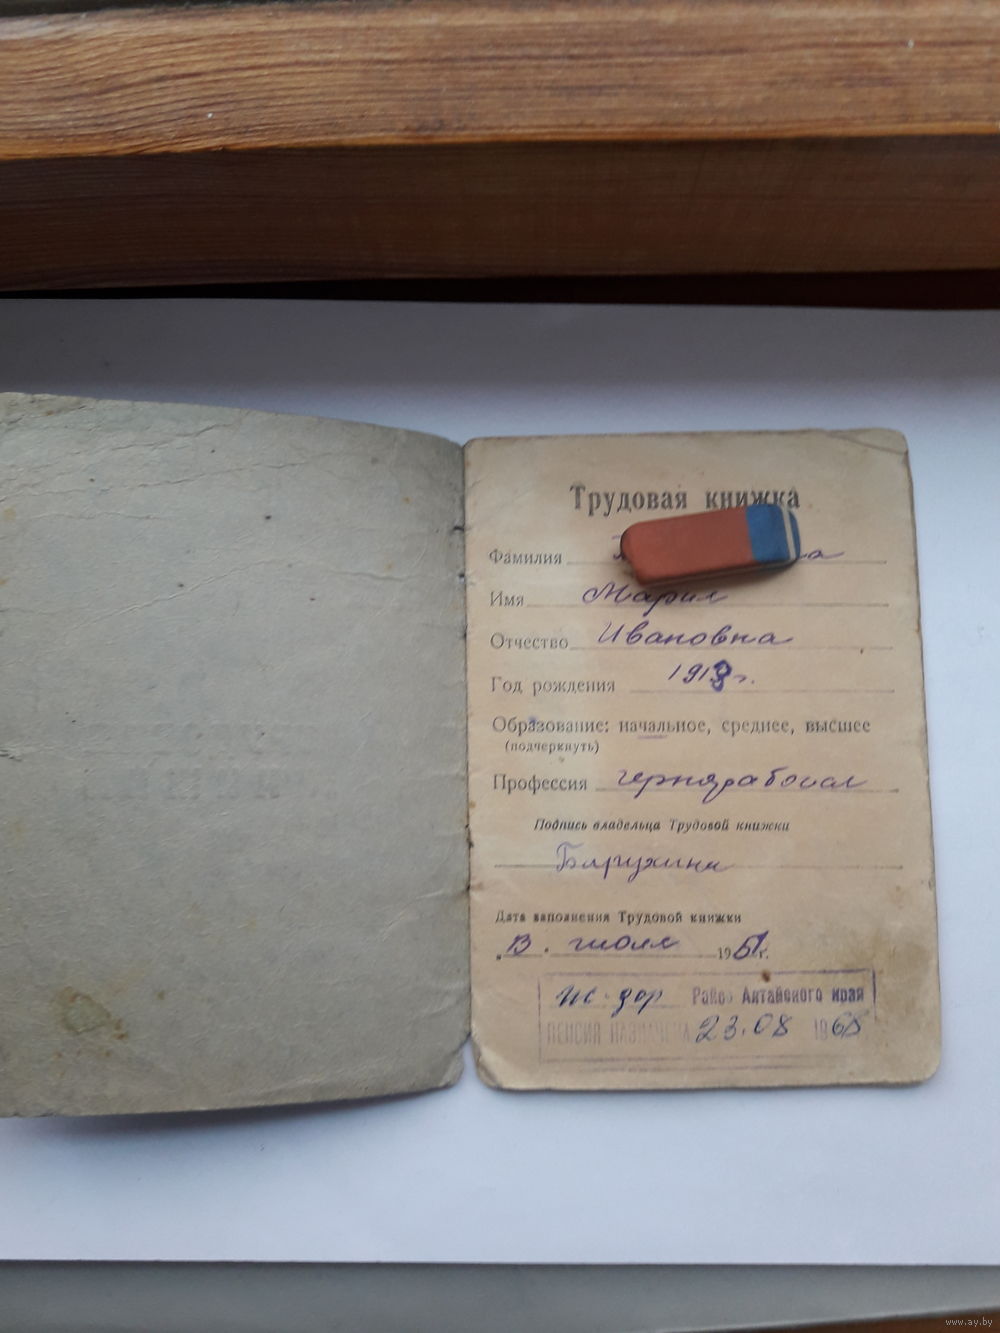 Трудовая книжка
Фамилия
Имя Мария
Отчество Ивановна
Год рождения 1913 г.
Образование: начальное, среднее, высшее
(подчеркнуть)
Профессия чернорабочая
Подпись владельца Трудовой книжки
Дата заполнения Трудовой книжки
13. июля 1951 г.
Райсо Алтайского края
ПЕНСИЯ НАЗНАЧЕНА 23.08 1968
www.ay.by